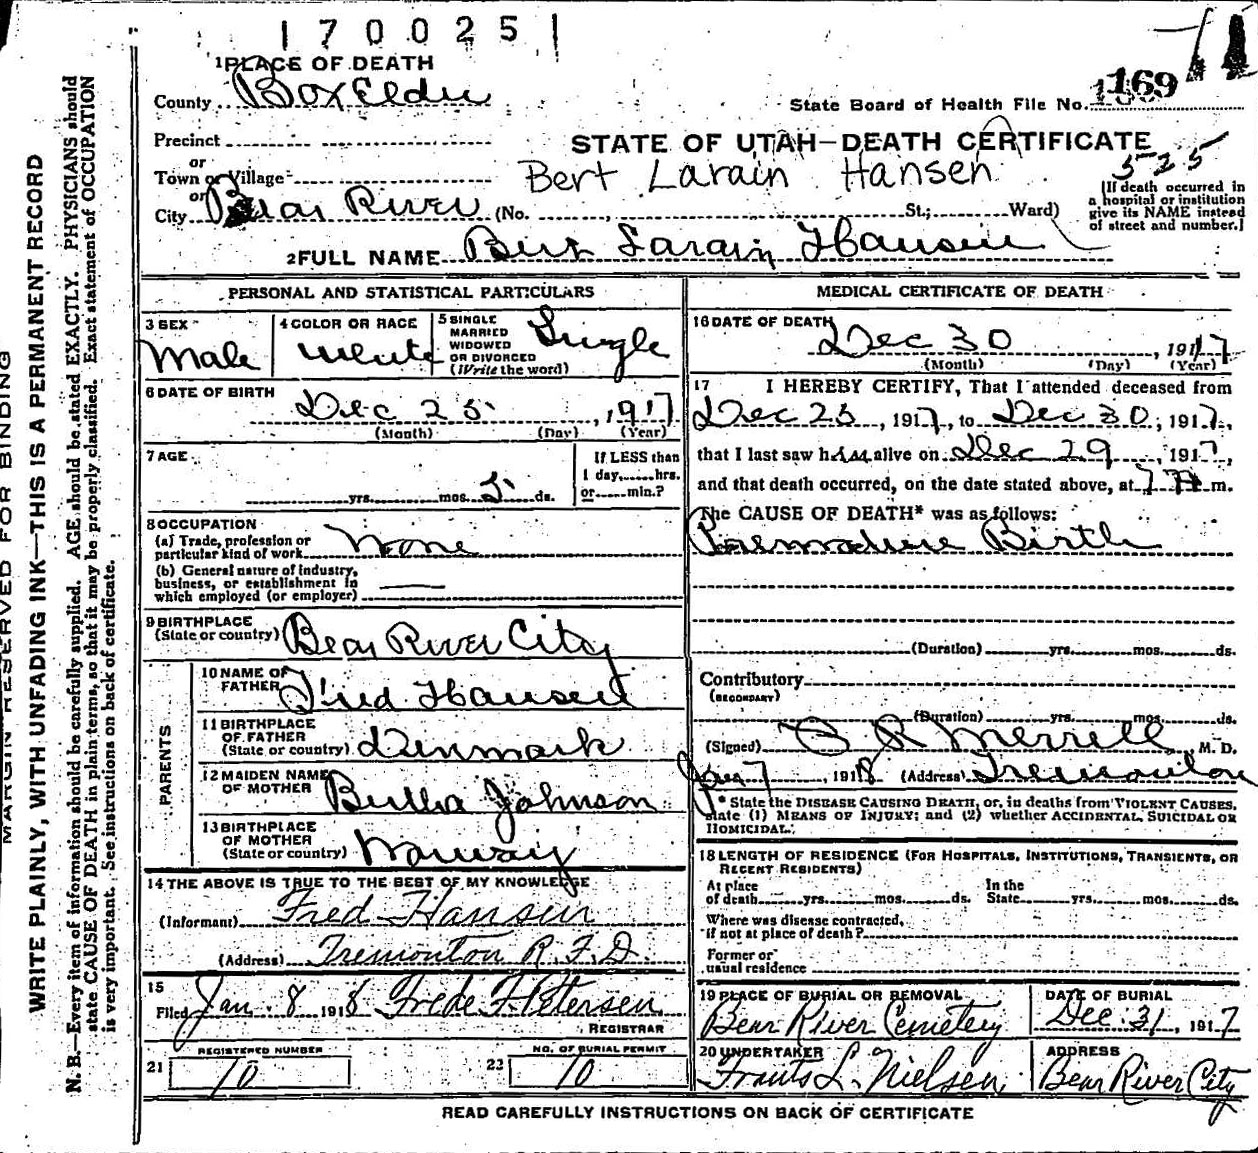 1700251
1 PLACE OF DEATH
County Box Elder
State Board of Health File No. 169
Precinct
STATE OF UTAH—DEATH CERTIFICATE
or
Town or Village
Bert Larain Hansen
525
or
City Bear River (No. St.; Ward)
[If death occurred in
a hospital or institution
give its NAME instead
of street and number.]
2 FULL NAME Bert Larain Hansen
PERSONAL AND STATISTICAL PARTICULARS
3 SEX
Male
4 COLOR OR RACE
White
5 SINGLE
MARRIED
WIDOWED
OR DIVORCED
(Write the word)
Single
6 DATE OF BIRTH
Dec 25, 1917
(Month) (Day) (Year)
7 AGE
yrs. mos. 5 ds.
If LESS than
1 day, hrs.
or min.?
8 OCCUPATION
(a) Trade, profession or
particular kind of work None
(b) General nature of industry,
business, or establishment in
which employed (or employer)
9 BIRTHPLACE
(State or country) Bear River City
PARENTS
10 NAME OF
FATHER Fred Hansen
11 BIRTHPLACE
OF FATHER
(State or country) Denmark
12 MAIDEN NAME
OF MOTHER Bertha Johnson
13 BIRTHPLACE
OF MOTHER
(State or country) Norway
14 THE ABOVE IS TRUE TO THE BEST OF MY KNOWLEDGE
(Informant) Fred Hansen
(Address) Tremonton R.F.D.
15
Filed Jan. 8 1918 Frede F Petersen
REGISTRAR
REGISTERED NUMBER
21 10
NO. OF BURIAL PERMIT
22 10
MEDICAL CERTIFICATE OF DEATH
16 DATE OF DEATH
Dec 30, 1917
(Month) (Day) (Year)
17 I HEREBY CERTIFY, That I attended deceased from
Dec 25, 1917, to Dec 30, 1917,
that I last saw him alive on Dec 29, 1917,
and that death occurred, on the date stated above, at 7 A m.
The CAUSE OF DEATH* was as follows:
Premature Birth
(Duration) yrs. mos. ds.
Contributory
(SECONDARY)
(Duration) yrs. mos. ds.
(Signed) R Merrell, M. D.
Jan 7, 1918 (Address) Tremonton
* State the DISEASE CAUSING DEATH, or, in deaths from VIOLENT CAUSES,
state (1) MEANS OF INJURY; and (2) whether ACCIDENTAL, SUICIDAL OR
HOMICIDAL.
18 LENGTH OF RESIDENCE (FOR HOSPITALS, INSTITUTIONS, TRANSIENTS, OR
RECENT RESIDENTS)
At place
of death yrs. mos. ds.
In the
State yrs. mos. ds.
Where was disease contracted,
if not at place of death?
Former or
usual residence
19 PLACE OF BURIAL OR REMOVAL
Bear River Cemetery
DATE OF BURIAL
Dec. 31, 1917
20 UNDERTAKER
Frants L. Nielsen
ADDRESS
Bear River City
READ CAREFULLY INSTRUCTIONS ON BACK OF CERTIFICATE
MARGIN RESERVED FOR BINDING
WRITE PLAINLY, WITH UNFADING INK—THIS IS A PERMANENT RECORD
N. B.—Every item of information should be carefully supplied. AGE should be stated EXACTLY. PHYSICIANS should
state CAUSE OF DEATH in plain terms, so that it may be properly classified. Exact statement of OCCUPATION
is very important. See instructions on back of certificate.